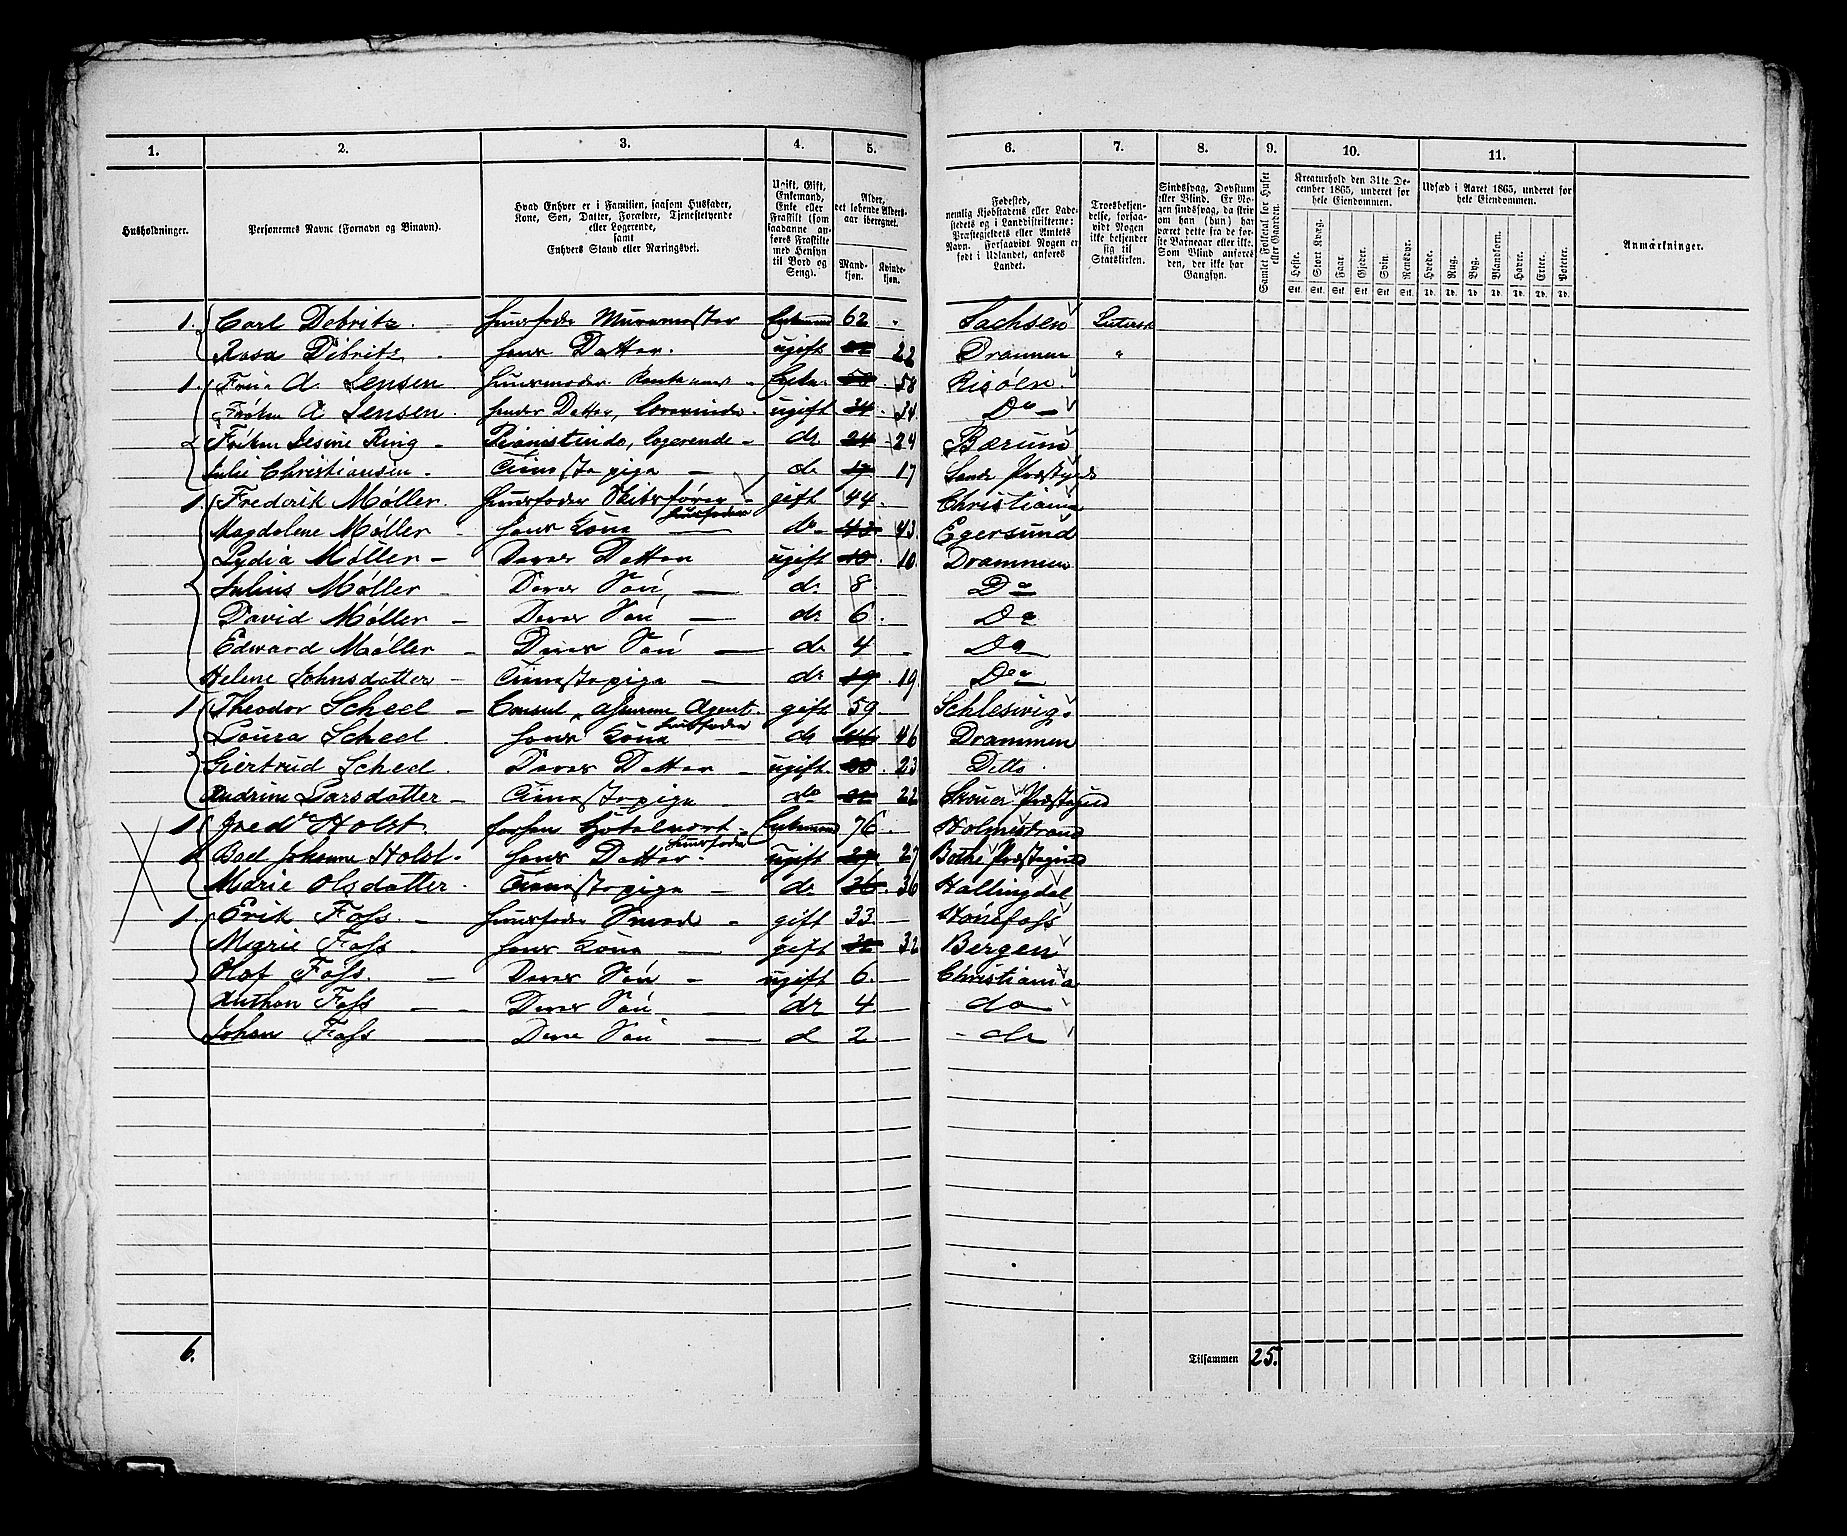 1. 2. 3. 4. 5. 6. 7. 8. 9. 10. 11.
Husholdninger.
Personernes Navne (Fornavn og Binavn).
Hvad Enhver er i Familien, saasom Husfader, Kone, Søn, Datter, Forældre, Tjenestetyende eller Logerende, samt Enhvers Stand eller Næringsvei.
Ugift, Gift, Enkemand, Enke eller Fraskilt (som saadanne anføres Fraskilte med Hensyn til Bord og Seng).
Alder, det løbende Aldersaar iberegnet.
Mandkjøn. Kvindekjøn.
Fødested, nemlig Kjøbstadens eller Ladestedets og i Landdistrikterne: Præstegjeldets eller Amtets Navn. Forsaavidt Nogen er født i Udlandet, anføres Landet.
Troesbekjendelse, forsaavidt Nogen ikke bekjender sig til Statskirken.
Sindssvag, Døvstum eller Blind. Er Nogen sindssvag, da skrives om han (hun) har været dette fra de første Barneaar eller ikke. Som Blind anføres den, der ikke har Gangsyn.
Samlet Folketal for Huset eller Gaarden.
Kreaturhold den 31te December 1865, underet for hele Eiendommen.
Heste. Stort Kvæg. Faar. Gjeder. Svin. Rensdyr.
Stk. Stk. Stk. Stk. Stk. Stk.
Udsæd i Aaret 1865, underet for hele Eiendommen.
Hvede. Rug. Byg. Blandkorn. Havre. Erter. Poteter.
Td. Td. Td. Td. Td. Td. Td.
Anmærkninger.
1. Carl Debritz Huusfader Muurmester Enkmand 62 Sachsen Luthersk
Rosa Debritz hans Datter. ugift 22 22 Drammen "
1. Frue A. Jensen Huusmoder Enke 58 58 Risøen
Frøken A Jensen. hendes Datter, Lærerinde ugift 34 34 Do
2 Frøken Jesine Ring Pianistinde, logerende do 24 24 Bærum
Julie Christiansen Tienestepige do 17 17 Sande Præstgjeld
1. Frederik Møller Huusfader Skibsfører gift 44 Christiania
Magdalene Møller hans Kone huusfader do 43 43 Egersund
Lydia Møller Deres Datter ugift 10 10 Drammen
Julius Møller Deres Søn do 8 Do
David Møller Deres Søn do 6 Do
Edward Møller Deres Søn do 4 Do
Helene Johnsdatter Tienestepige do 19 19 Do
1 Theodor Scheel Consul, Agent gift 59 Schlesvig
Loura Scheel hans Kone huusfader do 46 46 Drammen
Giertrud Scheel. Deres Datter ugift 23 23 Detto
Andrine Larsdatter Tienestepige do 22 22 Skouer Præstegield
1 Fredr Holst. forhen Hotelvert Enkmand 76 Holmestrand
Boel Johanne Holst. hans Datter huusfader ugift 27 27 Præstegield
Marie Olsdatter. Tienestepige do 36 36 Hallingdal
1. Erik Foss. Huusfader Smed gift 33 Hønefoss
Marie Foss. hans Kone gift 32 32 Bergen
Olaf Foss. Deres Søn ugift 6. Christiania
Anthon Foss Deres Søn do 4 do
Johan Foss Deres Søn d 2 do
6. Tilsammen 25.